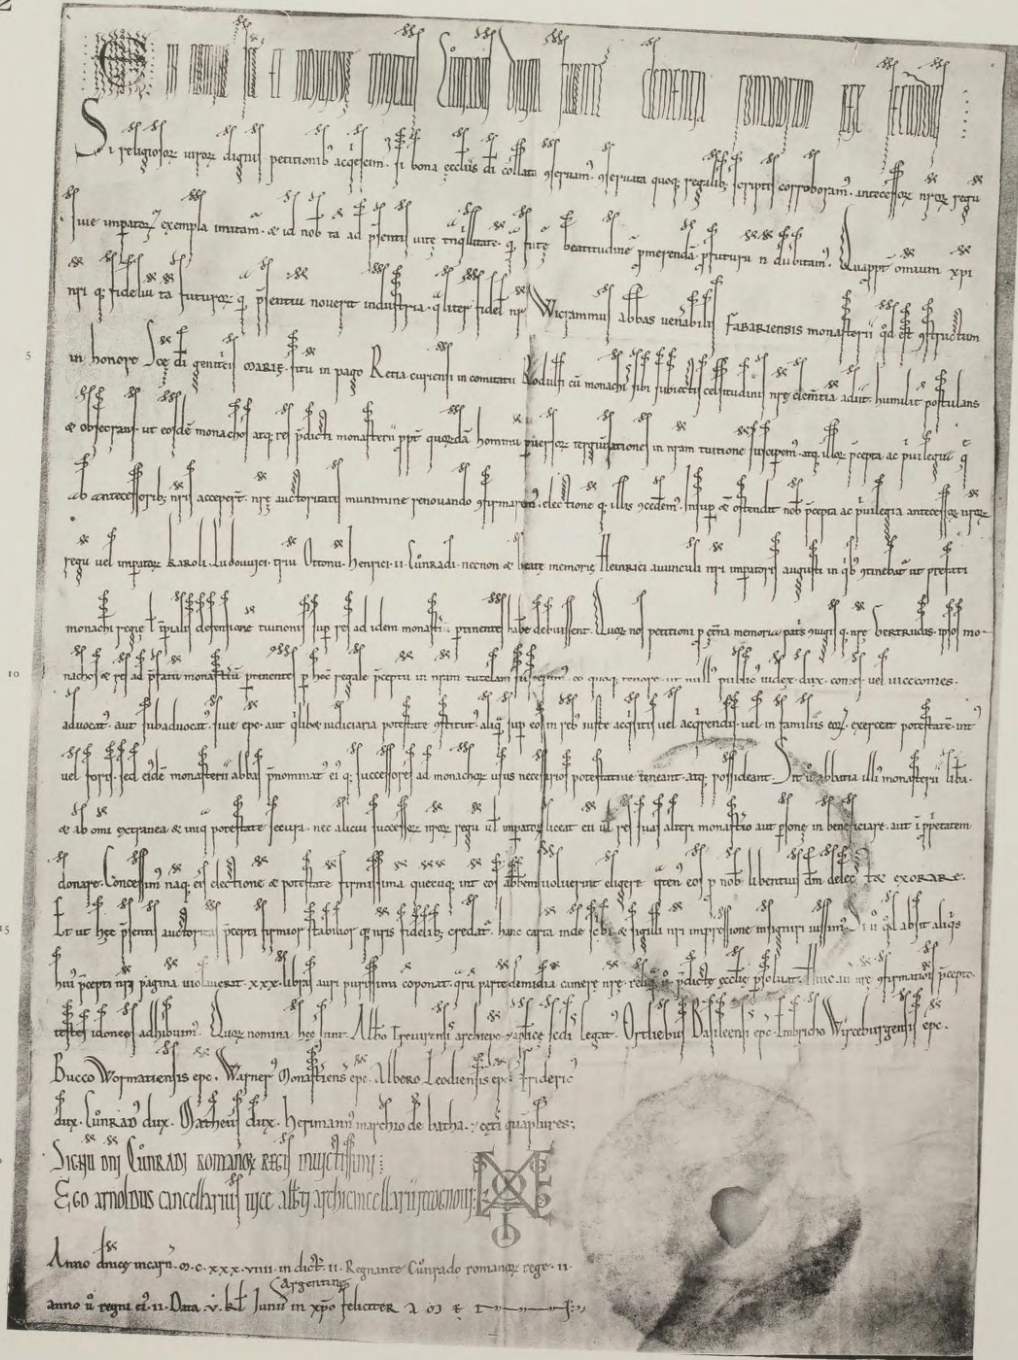 In nomine sce et individue trinitatis Cůnradus divina favente clementia romanorum rex secundus
Si religiosoꝝ viroꝝ dignis petitionibꝰ acqescimꝰ si bona ecclesiis di collata ꝯservamꝰ ꝯservata quoq; regalibꝰ scriptis corroboramꝰ antecessoꝝ nr̄oꝝ regū
sive imperatoꝝ exempla imitamꝰ & id nob ta ad p̄sentis vite tn̄qllitate qͣ futurę beatitudinē p̄merendā ꝓfuturū n dubitamꝰ. Quappt omium xpi
nri q; fidelium ta futuroꝝ qͣ p̄sentium noverit industria qͣliter fidel nr Wicrammus abbas venerabilis Fabariensis monasterii qd est ꝯstructum
in honore Sce di genitricis Marię situ in pago Retia curiensi in comitatu Rodulfi cū monachis sibi subiectis celsitudinis nrę clementiā adiit humilit postulans
& obsecrans ut eosdē monachos atq; res p̄dicti monasterii ppt quordā hominū pversoꝝ tergiversationes in nram tuitione susciperemꝰ atq; illoꝝ p̄cepta ac privilegia q̄
ab antecessoribꝰ nris acceperᵗ nrę auctoritatis munimine renovando ꝯfirmaremꝰ electione q; illis ꝯcedemꝰ. Insup & ostendit nob p̄cepta ac privilegia antecessoꝝ nroꝝ
regū vel imperatoꝝ Karoli. Ludouuici. triū Ottonū. Henrici. ii. Cůnradi. necnon & beatę memorię Heinrici avunculi nri imperatoris augusti in qbꝰ ꝯtinebatᷣ ut prefati
monachi regię l īperialis defensione tuitionis sup res ad idem monasteriū ptinentes habe debuissent. Quoꝝ nos petitioni p etna memoria patris ꝯiugis q; nrę Gertrudas. ipsos mo-
nachos & res ad p̄fatū monasteriū ptinentes p hoc regale p̄ceptū in nram tutelam suscepimꝰ. eo quoq; tenore. ut nullꝰ publicꝰ iudex. dux. comes. vel vicecomes.
advocatꝰ. aut subadvocatꝰ. sive epc. aut qlibet iudiciaria potestate ꝯstitutꝰ. aliqͣ sup eos in rebꝰ iuste acqsitis vel acqrendis. vel in familiis eoꝝ. exerceat potestatē. intꝰ
vel foris. sed eidē monasterii abbas p̄nominatꝰ eiꝰ q; successores ad monachoꝝ usus necessarios potestative teneant. atq; possideant. Sit v̊ abbatia illiꝰ monasterii liba.
& ab omi extranea & iniq potestate secura. nec alicui successoꝝ nroꝝ regū vl imperatoꝝ liceat eū vl res suas alteri monastio aut psonę in beneficiare. aut ī pprietatem
donare. Concessimꝰ naq; eis electione & potestate firmissima quecuq; int eos abbem voluerint eligere qten eos p nob libentius dm delectet exorare.
Et ut hęc p̄sentis auctoritas p̄cepti firmior stabilior q; nris fidelibꝰ credatᷣ. hanc carta inde scbi & sigilli nri impressione insigniri iussimꝰ. Si v̊ qd absit aliqs
huiꝰ p̄cepti nri pagina violaverit. xxx. libras auri purissima coponat. qrū parte demidia camerę nrę. reliqͣ v̊ p̄dictę ecclię psolvat. Huic au nrę ꝯfirmationis p̄cepto
testes idoneos adhibuimꝰ. Quoꝝ nomina hęc sunt. Albo Treverensis archiepc & aplicę sedis legatꝰ. Ortliebus Basileensis epc. Embricho Wirceburgensis epc.
Bucco Wormatiensis epc. Warnerꝰ Monastiensis epc. Albero Leodiensis epc. Fridericꝰ
dux. Cůnradꝰ dux. Matheus dux. Hermannꝰ marchio de batha. & cęti qmplures;
Signū dni Cůnradi romanoꝝ regis invictissimi;
Ego Arnoldus cancellarius vice albti archicancellarii recognovi;
Anno dnicę incarn̄. M. C. xxx. viiii. indict. ii. Regnante Cůnrado romanoꝝ rege. ii.
argentinę
anno v̊ regni eiꝰ. ii. Data. v. kl Iunii in xpo feliciter AMEN